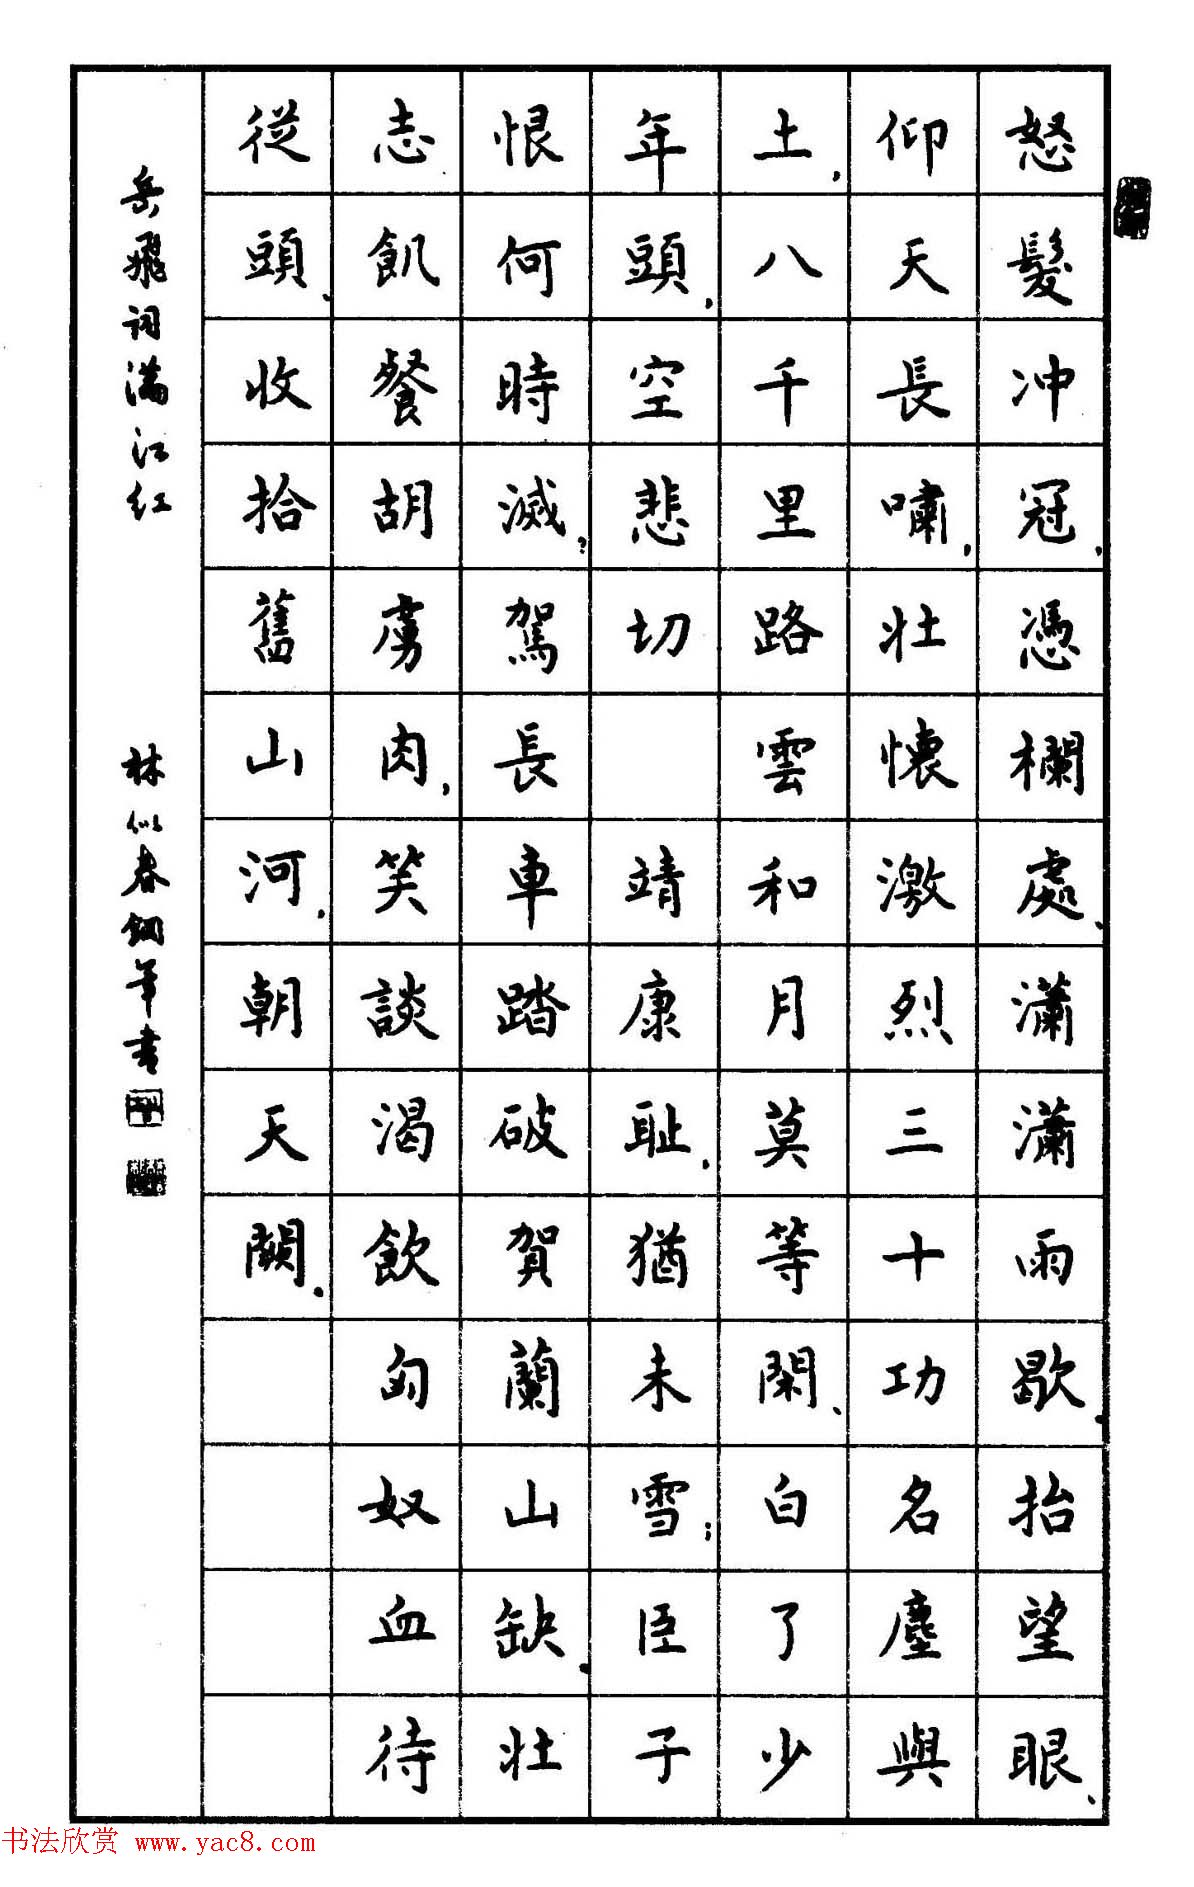 怒髮冲冠，憑欄處、瀟瀟雨歇．抬望眼、
仰天長嘯，壯懷激烈三十功名塵與
土，八千里路雲和月莫等閑、白了少
年頭，空悲切 靖康耻，猶未雪；臣子
恨何時滅？駕長車踏破賀蘭山缺．壯
志飢餐胡虜肉，笑談渴飲匈奴血待
從頭、收拾舊山河，朝天闕．
岳飛词满江红 林似春鋼筆书
书法欣赏 www.yac8.com